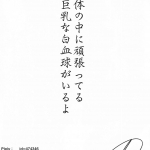 体の中に頑張ってる
巨乳な白血球がいるよ